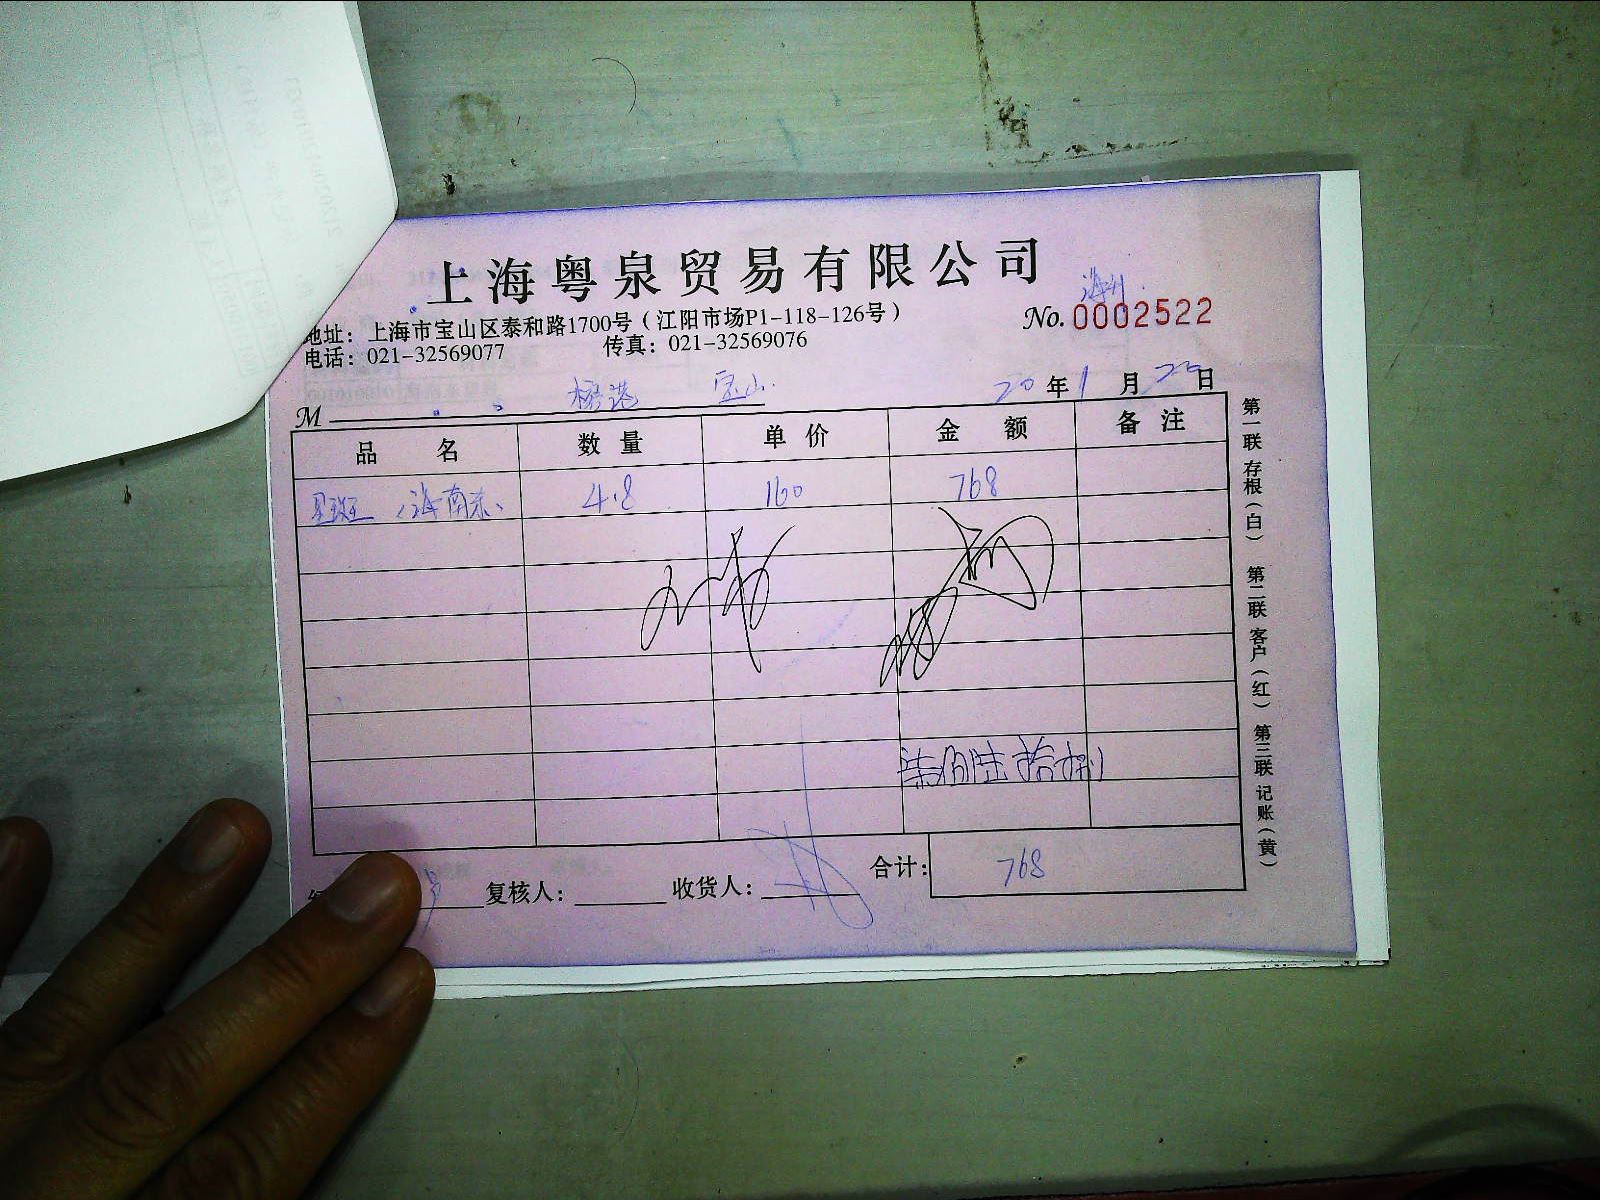 上海粤泉贸易有限公司
地址：上海市宝山区泰和路1700号（江阳市场P1-118-126号）
No. 0002522
电话：021-32569077 传真：021-32569076
M 宝山 20年1月 日
品名 数量 单价 金额 备注
星斑（海南东） 4.8 160 768
柒佰陆拾捌
复核人： 收货人： 合计： 768
第一联 存根（白） 第二联 客户（红） 第三联 记账（黄）